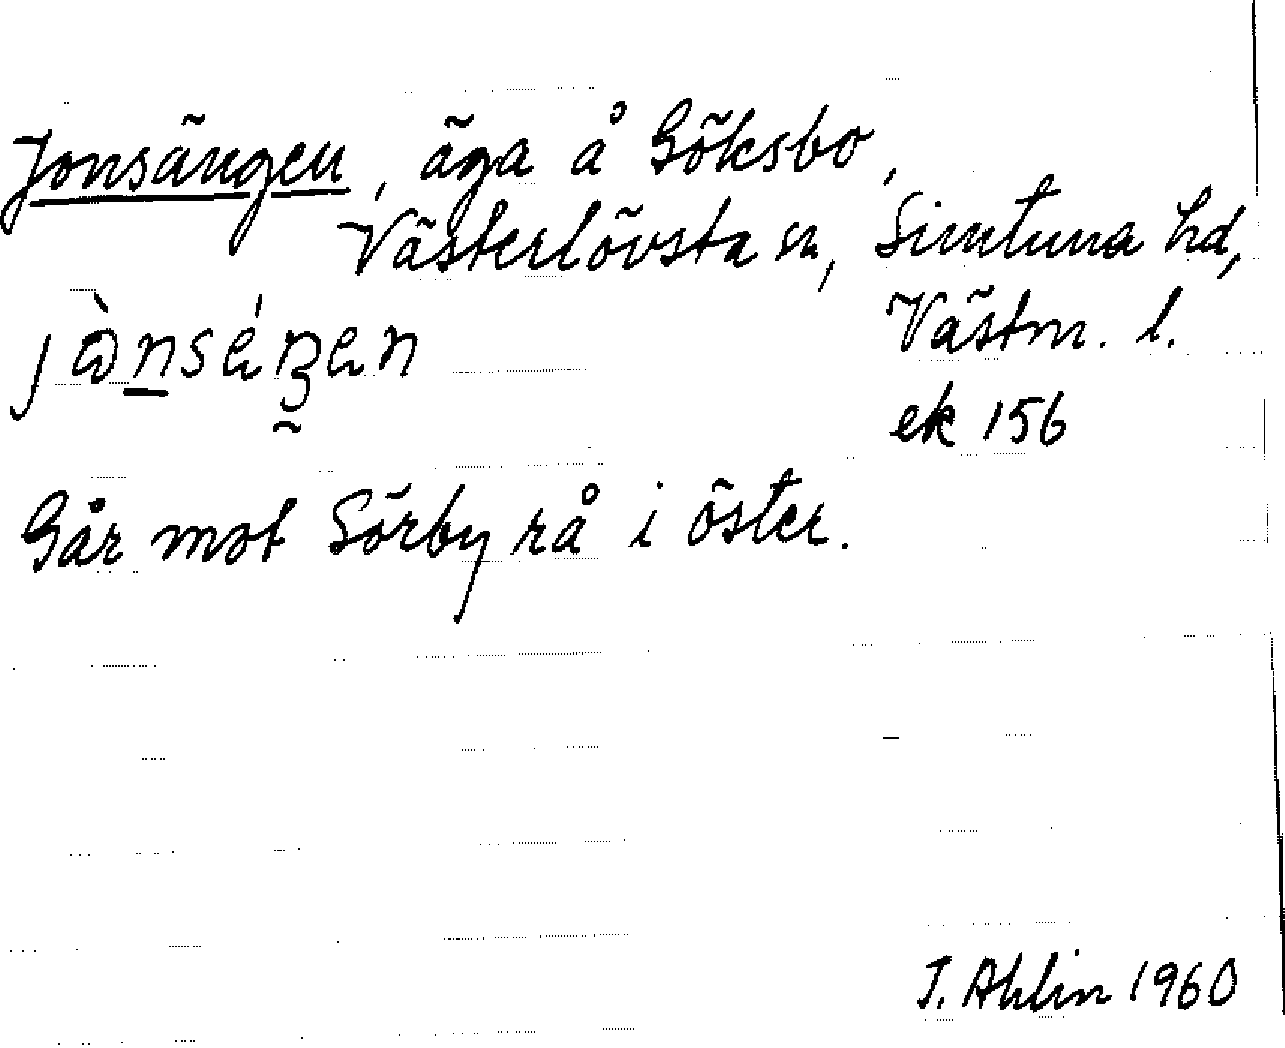 Jonsängen, äga å Göksbo,
Västerlövsta sn, Simtuna hd,
Västm. l.
jònséŋen
ek 156
Går mot Sörby rå i öster.
J. Ahlin 1960